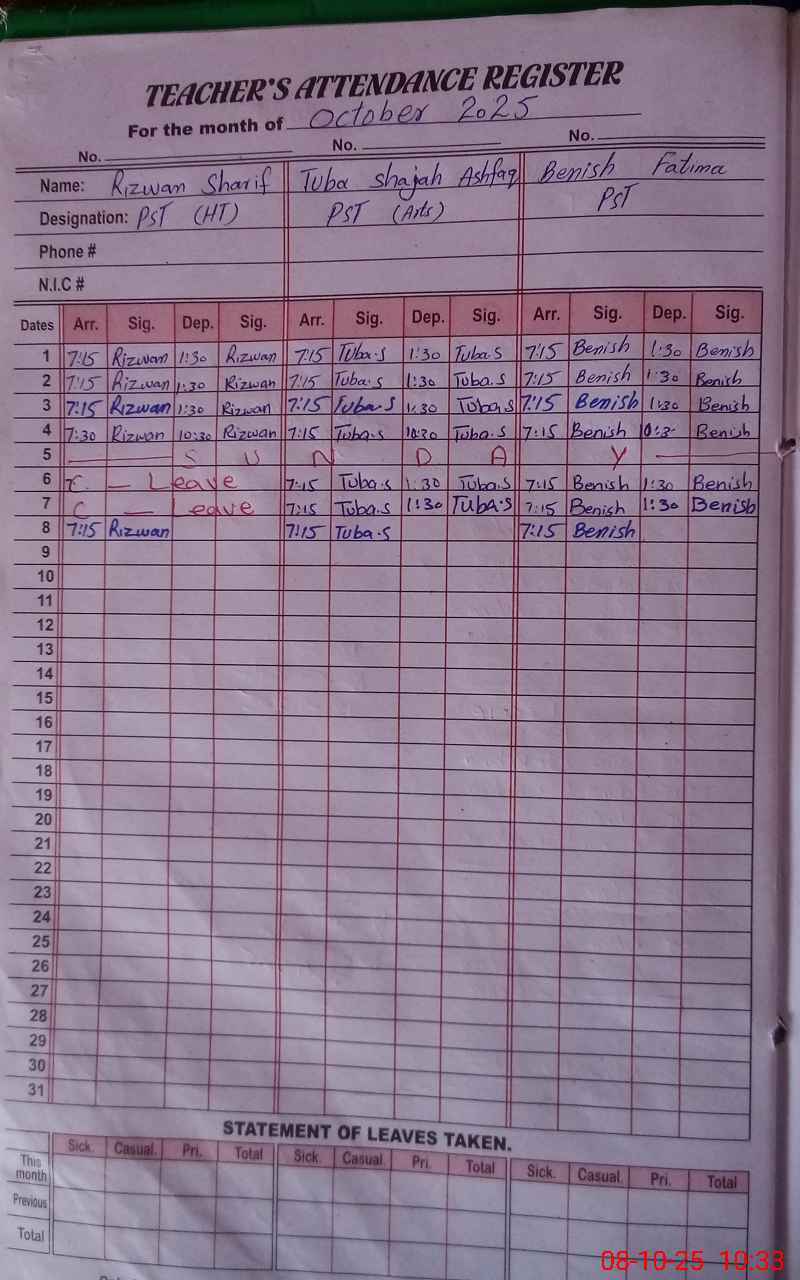 TEACHER'S ATTENDANCE REGISTER
For the month of October 2025
No. No. No.
Name: Rizwan Sharif Tuba Shajah Ashfaq Benish Fatima
Designation: PST (HT) PST (Arts) PST
Phone #
N.I.C #
Dates Arr. Sig. Dep. Sig. Arr. Sig. Dep. Sig. Arr. Sig. Dep. Sig.
1 7:15 Rizwan 1:30 Rizwan 7:15 Tuba.S 1:30 Tuba.S 7:15 Benish 1:30 Benish
2 7:15 Rizwan 1:30 Rizwan 7:15 Tuba.S 1:30 Tuba.S 7:15 Benish 1:30 Benish
3 7:15 Rizwan 1:30 Rizwan 7:15 Tuba.S 1:30 Tuba.S 7:15 Benish 1:30 Benish
4 7:30 Rizwan 10:30 Rizwan 7:15 Tuba.S 10:30 Tuba.S 7:15 Benish 10:3 Benish
5 S U N D A Y
6 C - Leave 7:15 Tuba.S 1:30 Tuba.S 7:15 Benish 1:30 Benish
7 C - Leave 7:15 Tuba.S 1:30 Tuba.S 7:15 Benish 1:30 Benish
8 7:15 Rizwan 7:15 Tuba.S 7:15 Benish
9
10
11
12
13
14
15
16
17
18
19
20
21
22
23
24
25
26
27
28
29
30
31
STATEMENT OF LEAVES TAKEN.
Sick. Casual. Pri. Total Sick. Casual. Pri. Total Sick. Casual. Pri. Total
This month
Previous
Total
08-10-25 10:33